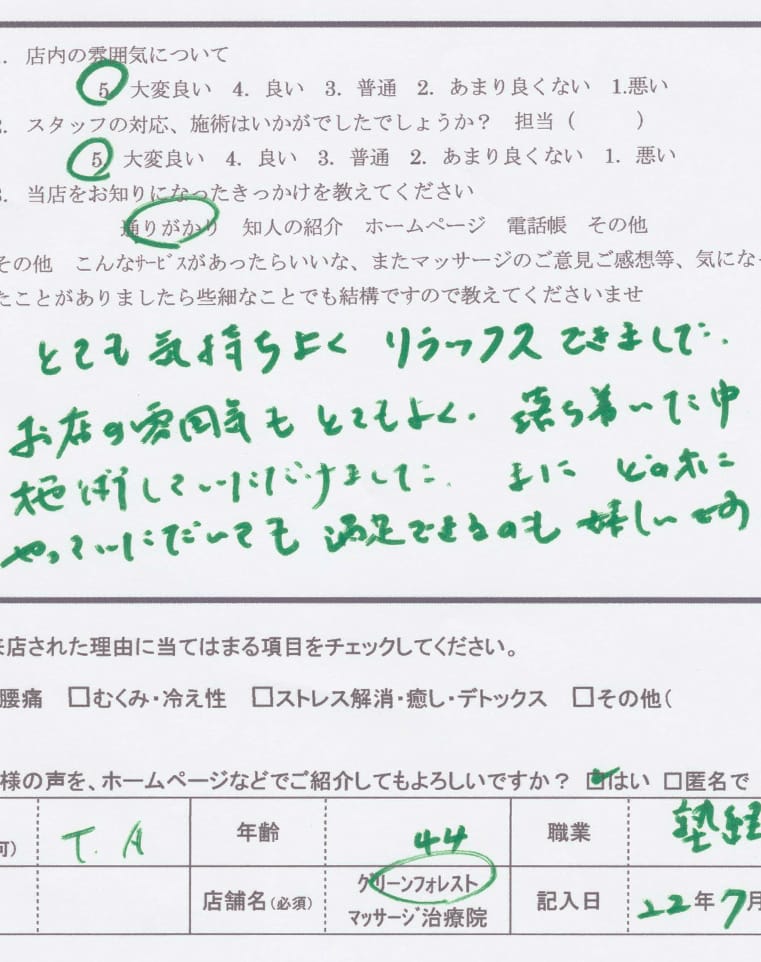 1. 店内の雰囲気について
5. 大変良い 4. 良い 3. 普通 2. あまり良くない 1.悪い
2. スタッフの対応、施術はいかがでしたでしょうか？ 担当（ ）
5. 大変良い 4. 良い 3. 普通 2. あまり良くない 1. 悪い
3. 当店をお知りになったきっかけを教えてください
通りがかり 知人の紹介 ホームページ 電話帳 その他
その他 こんなｻｰﾋﾞｽがあったらいいな、またマッサージのご意見ご感想等、気になっ
たことがありましたら些細なことでも結構ですので教えてくださいませ
とても気持ちよく リラックスできました.
お店の雰囲気もとてもよく. 落ち着いた中
施術していただけました.
やっていただいても 満足できるのも 嬉しいです
来店された理由に当てはまる項目をチェックしてください。
腰痛 □むくみ・冷え性 □ストレス解消・癒し・デトックス □その他（
様の声を、ホームページなどでご紹介してもよろしいですか？ ☑はい □匿名で
可） T. A 年齢 44 職業 塾経
店舗名（必須） グリーンフォレスト マッサージ治療院 記入日 22年7月